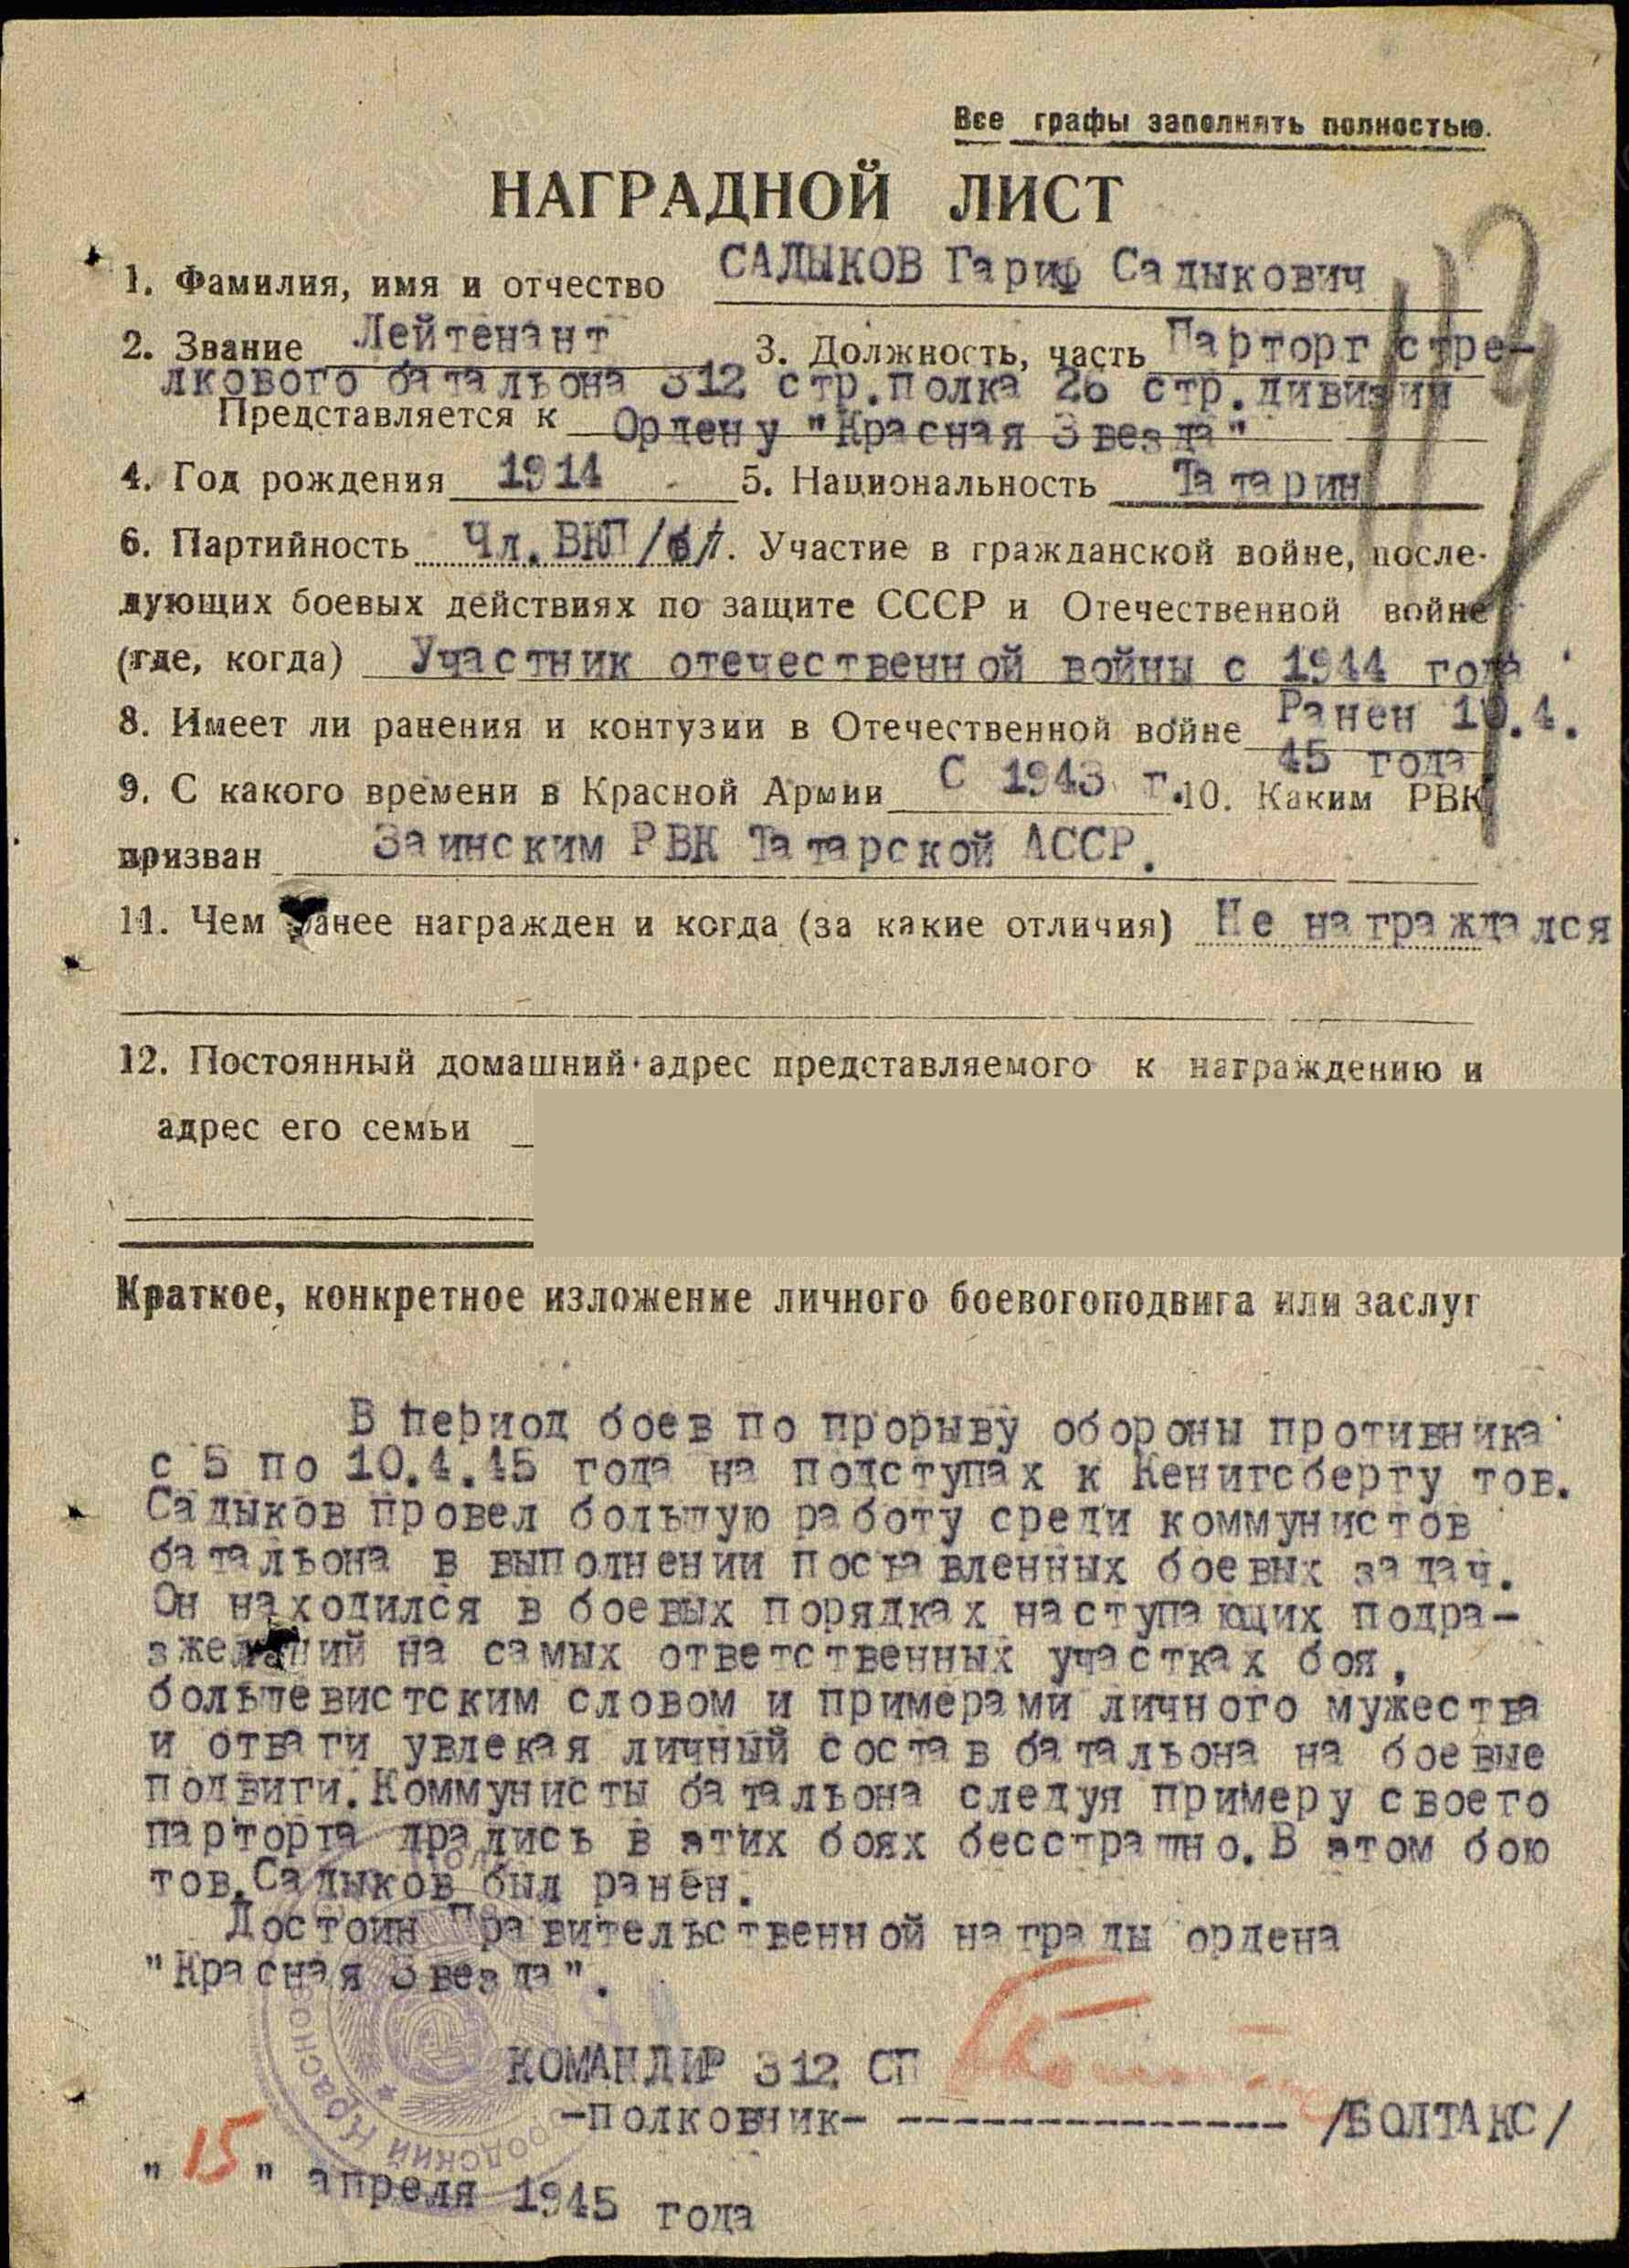 Все графы заполнять полностью.
НАГРАДНОЙ ЛИСТ
1. Фамилия, имя и отчество САДЫКОВ Гариф Садыкович
2. Звание Лейтенант 3. Должность, часть Парторг стре-
лкового батальона 312 стр.полка 26 стр.дивизии
Представляется к Ордену "Красная Звезда"
4. Год рождения 1914 5. Национальность Татарин
6. Партийность Чл.ВКП/б/7. Участие в гражданской войне, после-
дующих боевых действиях по защите СССР и Отечественной войне
(где, когда) Участник отечественной войны с 1944 года
8. Имеет ли ранения и контузии в Отечественной войне Ранен 10.4.
45 года
9. С какого времени в Красной Армии С 1943 г. 10. Каким РВК
призван Заинским РВК Татарской АССР.
11. Чем ранее награжден и когда (за какие отличия) Не награждался
12. Постоянный домашний адрес представляемого к награждению и
адрес его семьи
Краткое, конкретное изложение личного боевогоподвига или заслуг
В период боев по прорыву обороны противника
с 5 по 10.4.45 года на подступах к Кенигсбергу тов.
Садыков провел большую работу среди коммунистов
батальона в выполнении поставленных боевых задач.
Он находился в боевых порядках наступающих подра-
зжелений на самых ответственных участках боя,
большевистским словом и примерами личного мужества
и отваги увлекая личный состав батальона на боевые
подвиги.Коммунисты батальона следуя примеру своего
парторга дрались в этих боях бесстрашно.В этом бою
тов.Садыков был ранен.
Достоин Правительственной награды ордена
"Красная Звезда".
КОМАНДИР 312 СП
-полковник- /БОЛТАКС/
"15" апреля 1945 года